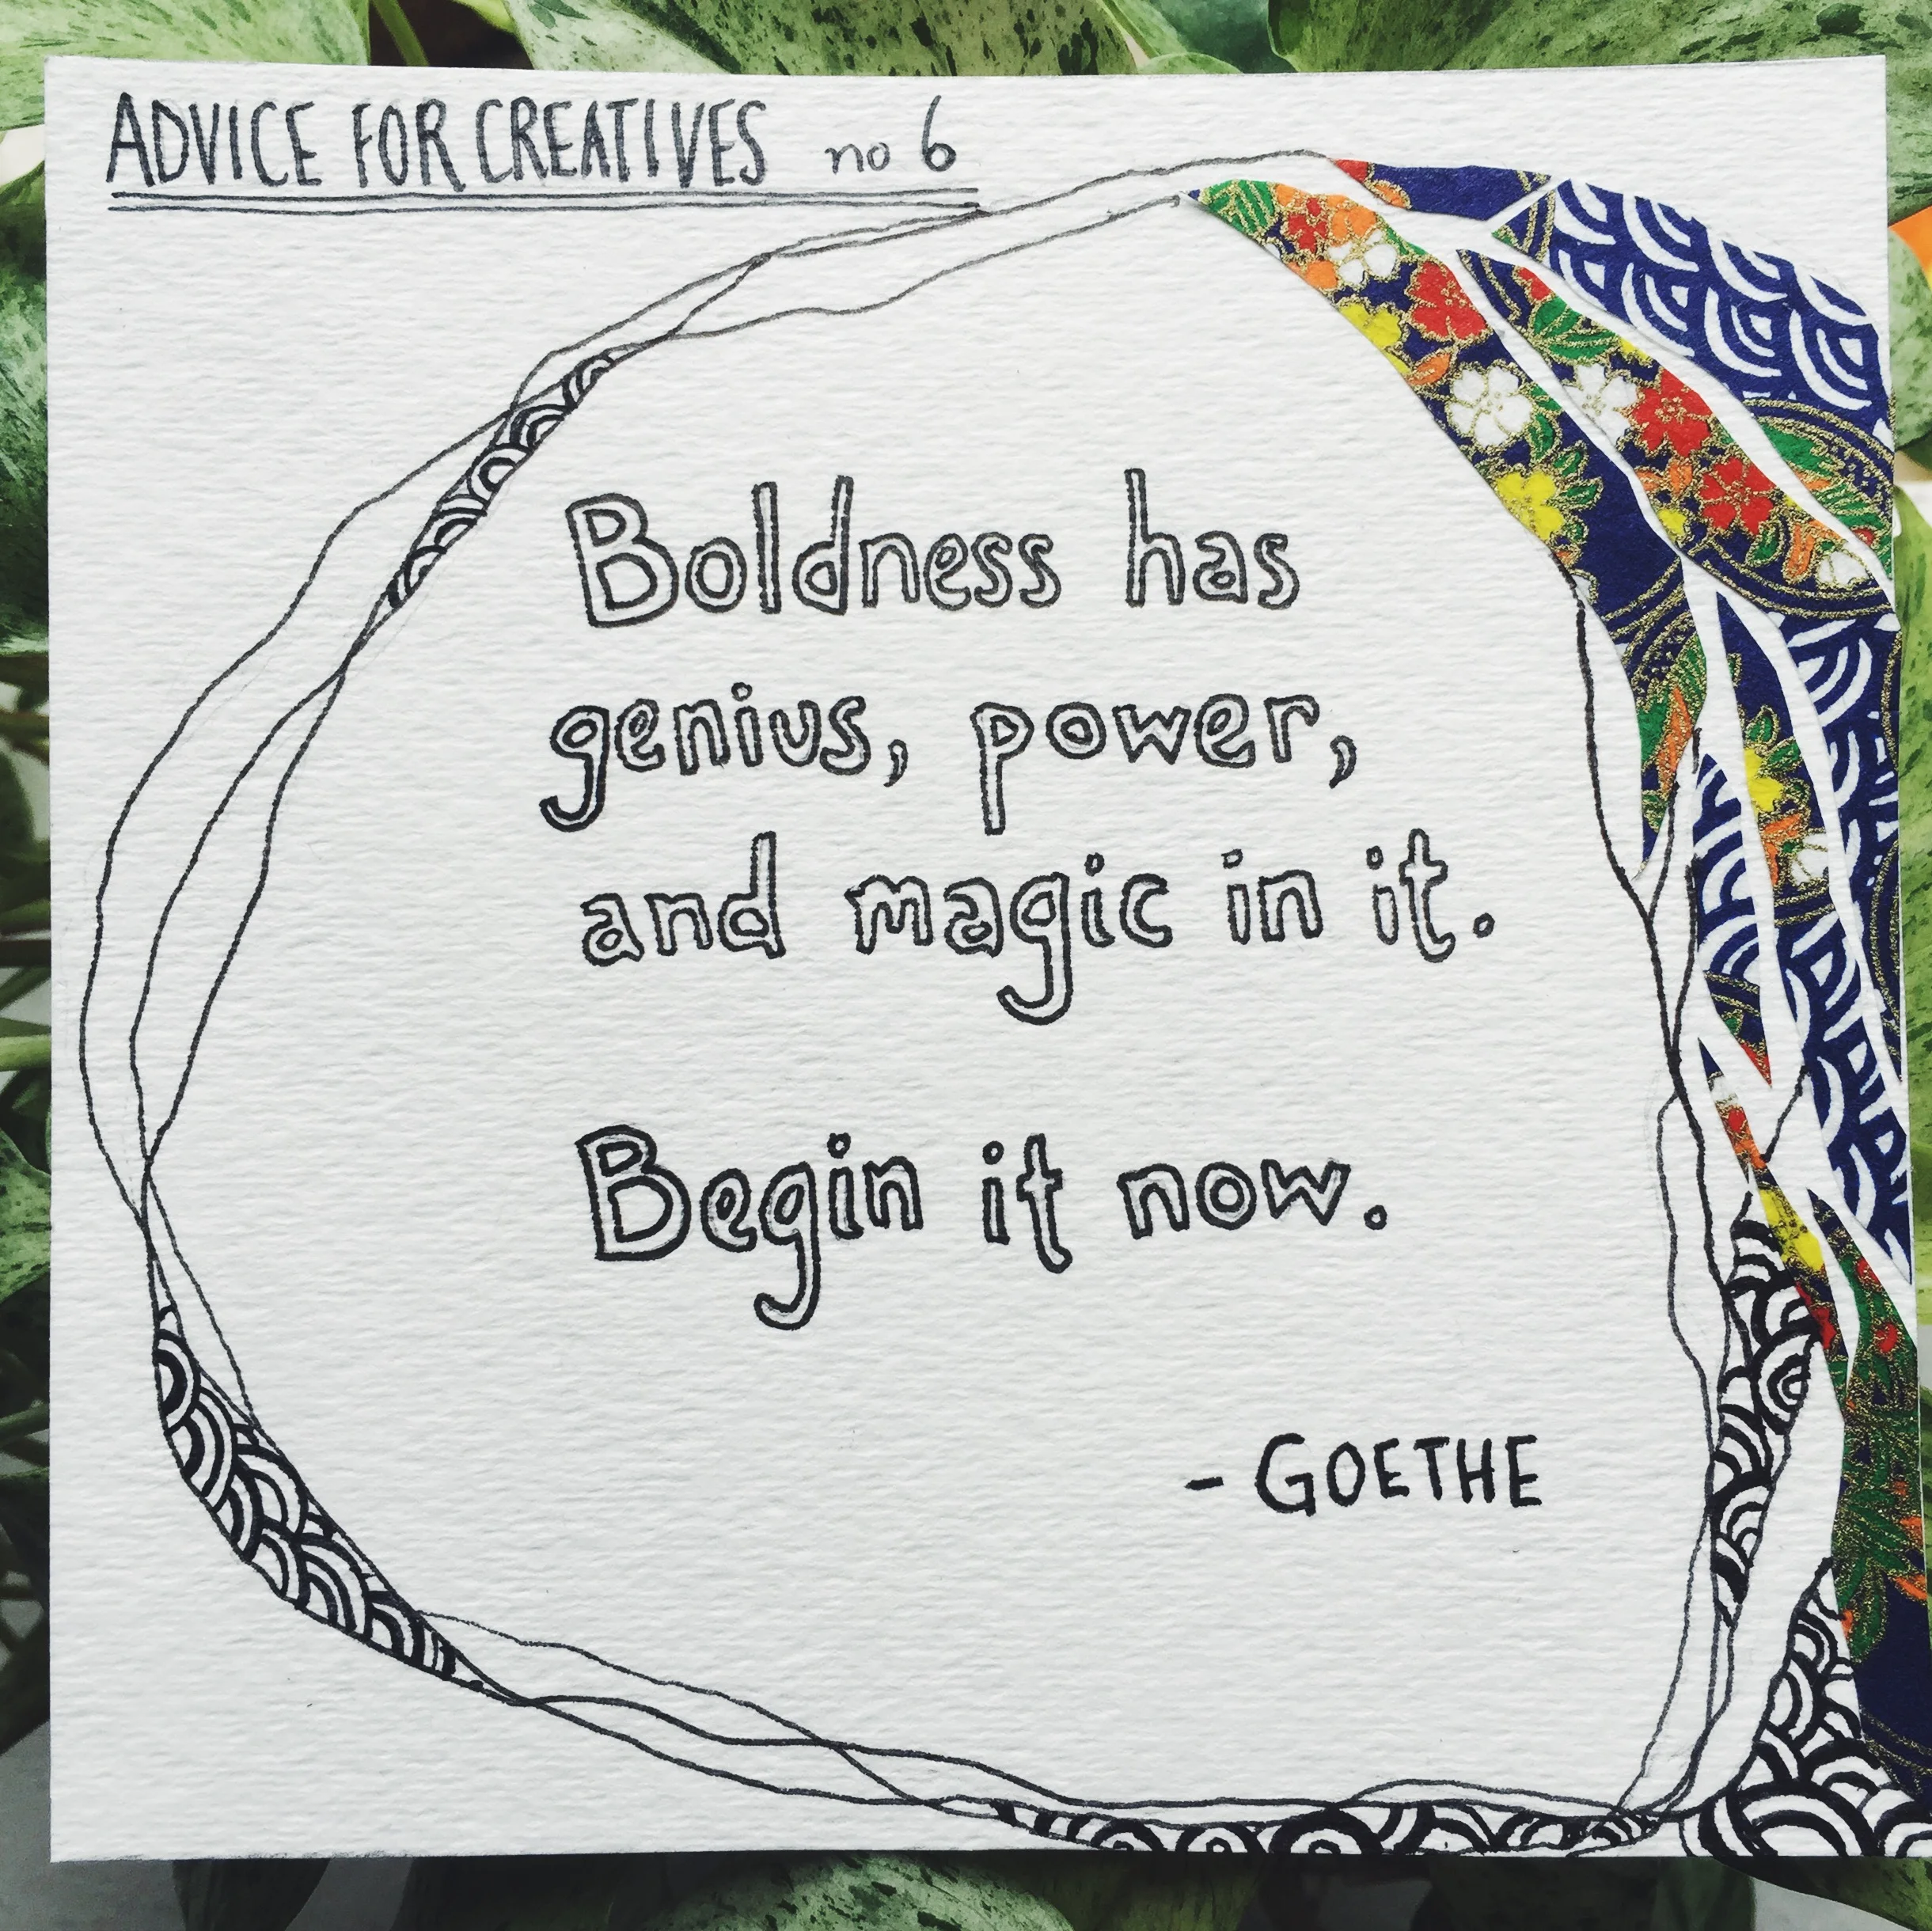 ADVICE FOR CREATIVES no 6
Boldness has
genius, power,
and magic in it.
Begin it now.
- GOETHE